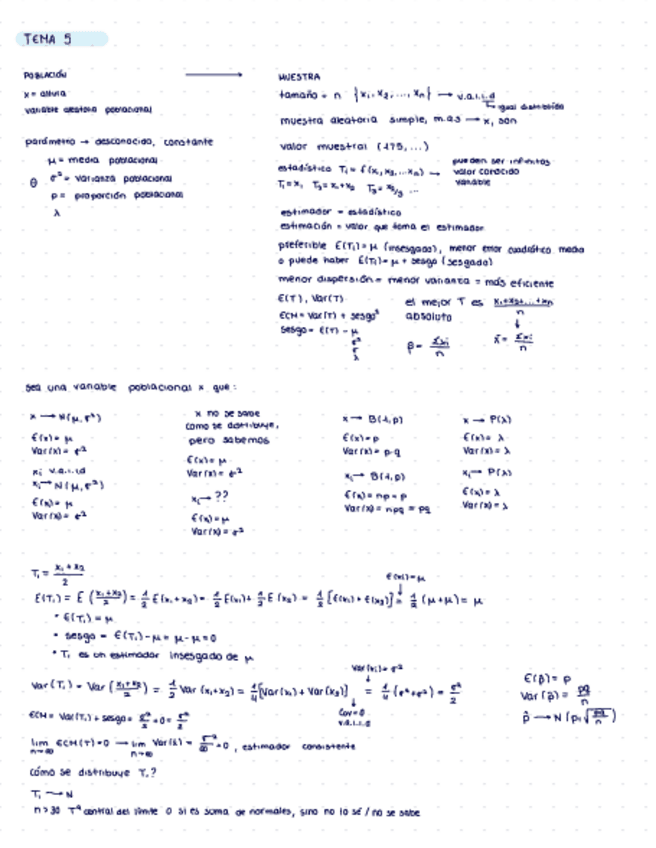 TEMA 5
POBLACIÓN ⟶ MUESTRA
x = altura
variable aleatoria poblacional
parámetro → desconocido, constante
μ = media poblacional
θ σ² = varianza poblacional
p = proporción poblacional
λ
tamaño = n {x₁, x₂, ..., xₙ} → v.a.i.i.d
igual distribuida
muestra aleatoria simple, m.a.s → xᵢ son
valor muestral (175,...)
estadístico T₁ = f(x₁, x₂... xₙ) → pueden ser infinitos
valor conocido
variable
T₁ = x₁ T₂ = x₁+x₂ T₃ = x₂/₃ ...
estimador = estadístico
estimación = valor que toma el estimador
preferible E(T₁) = μ (insesgado), menor error cuadrático medio
o puede haber E(T₁) = μ + sesgo (sesgado)
menor dispersión = menor varianza = más eficiente
E(T), Var(T)
ECM = Var(T) + sesgo²
sesgo = E(T) - μ
σ²
λ
el mejor T es x₁+x₂+...+xₙ / n
absoluto
p̂ = Σxᵢ / n x̄ = Σxᵢ / n
sea una variable poblacional x que:
x → N(μ, σ²)
E(x) = μ
Var(x) = σ²
xᵢ v.a.i.i.d
xᵢ → N(μ, σ²)
E(x) = μ
Var(x) = σ²
x no se sabe
como se distribuye,
pero sabemos
E(x) = μ
Var(x) = σ²
xᵢ → ??
E(xᵢ) = μ
Var(x) = σ²
x → B(1, p)
E(x) = p
Var(x) = p·q
xᵢ → B(1, p)
E(xᵢ) = np = p
Var(x) = npq = pq
x → P(λ)
E(x) = λ
Var(x) = λ
xᵢ → P(λ)
E(x) = λ
Var(x) = λ
T₁ = x₁ + x₂ / 2
E(xᵢ) = μ
E(T₁) = E (x₁+x₂ / 2) = 1/2 E(x₁+x₂) = 1/2 E(x₁) + 1/2 E(x₂) = 1/2 [E(x₁) + E(x₂)] = 1/2 (μ+μ) = μ
• E(T₁) = μ
• sesgo = E(T₁) - μ = μ - μ = 0
• T₁ es un estimador insesgado de μ
Var(xᵢ) = σ²
Var(T₁) = Var (x₁+x₂ / 2) = 1/2 Var (x₁+x₂) = 1/4 [Var(x₁) + Var(x₂)] = 1/4 (σ²+σ²) = σ²/2
Cov = 0
v.a.i.i.d
ECM = Var(T₁) + sesgo = σ²/2 + 0 = σ²/2
E(p̂) = p
Var(p̂) = pq / n
p̂ → N (p, √pq/n)
lim n→∞ ECM(T) = 0 → lim n→∞ Var(x̄) = σ²/∞ = 0, estimador consistente
cómo se distribuye T₁?
T₁ → N
n > 30 Tª central del límite o si es suma de normales, sino no lo sé / no se sabe